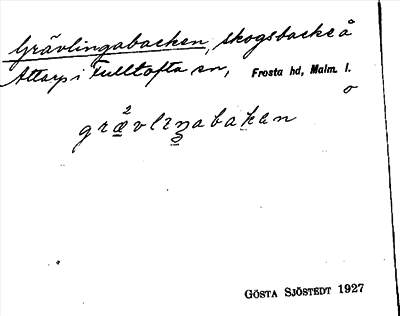 Grävlingabacken, skogsbacke å
Attarp i Fulltofta sn, Frosta hd, Malm. l.
o
græ²vliŋabakan
GÖSTA SJÖSTEDT 1927